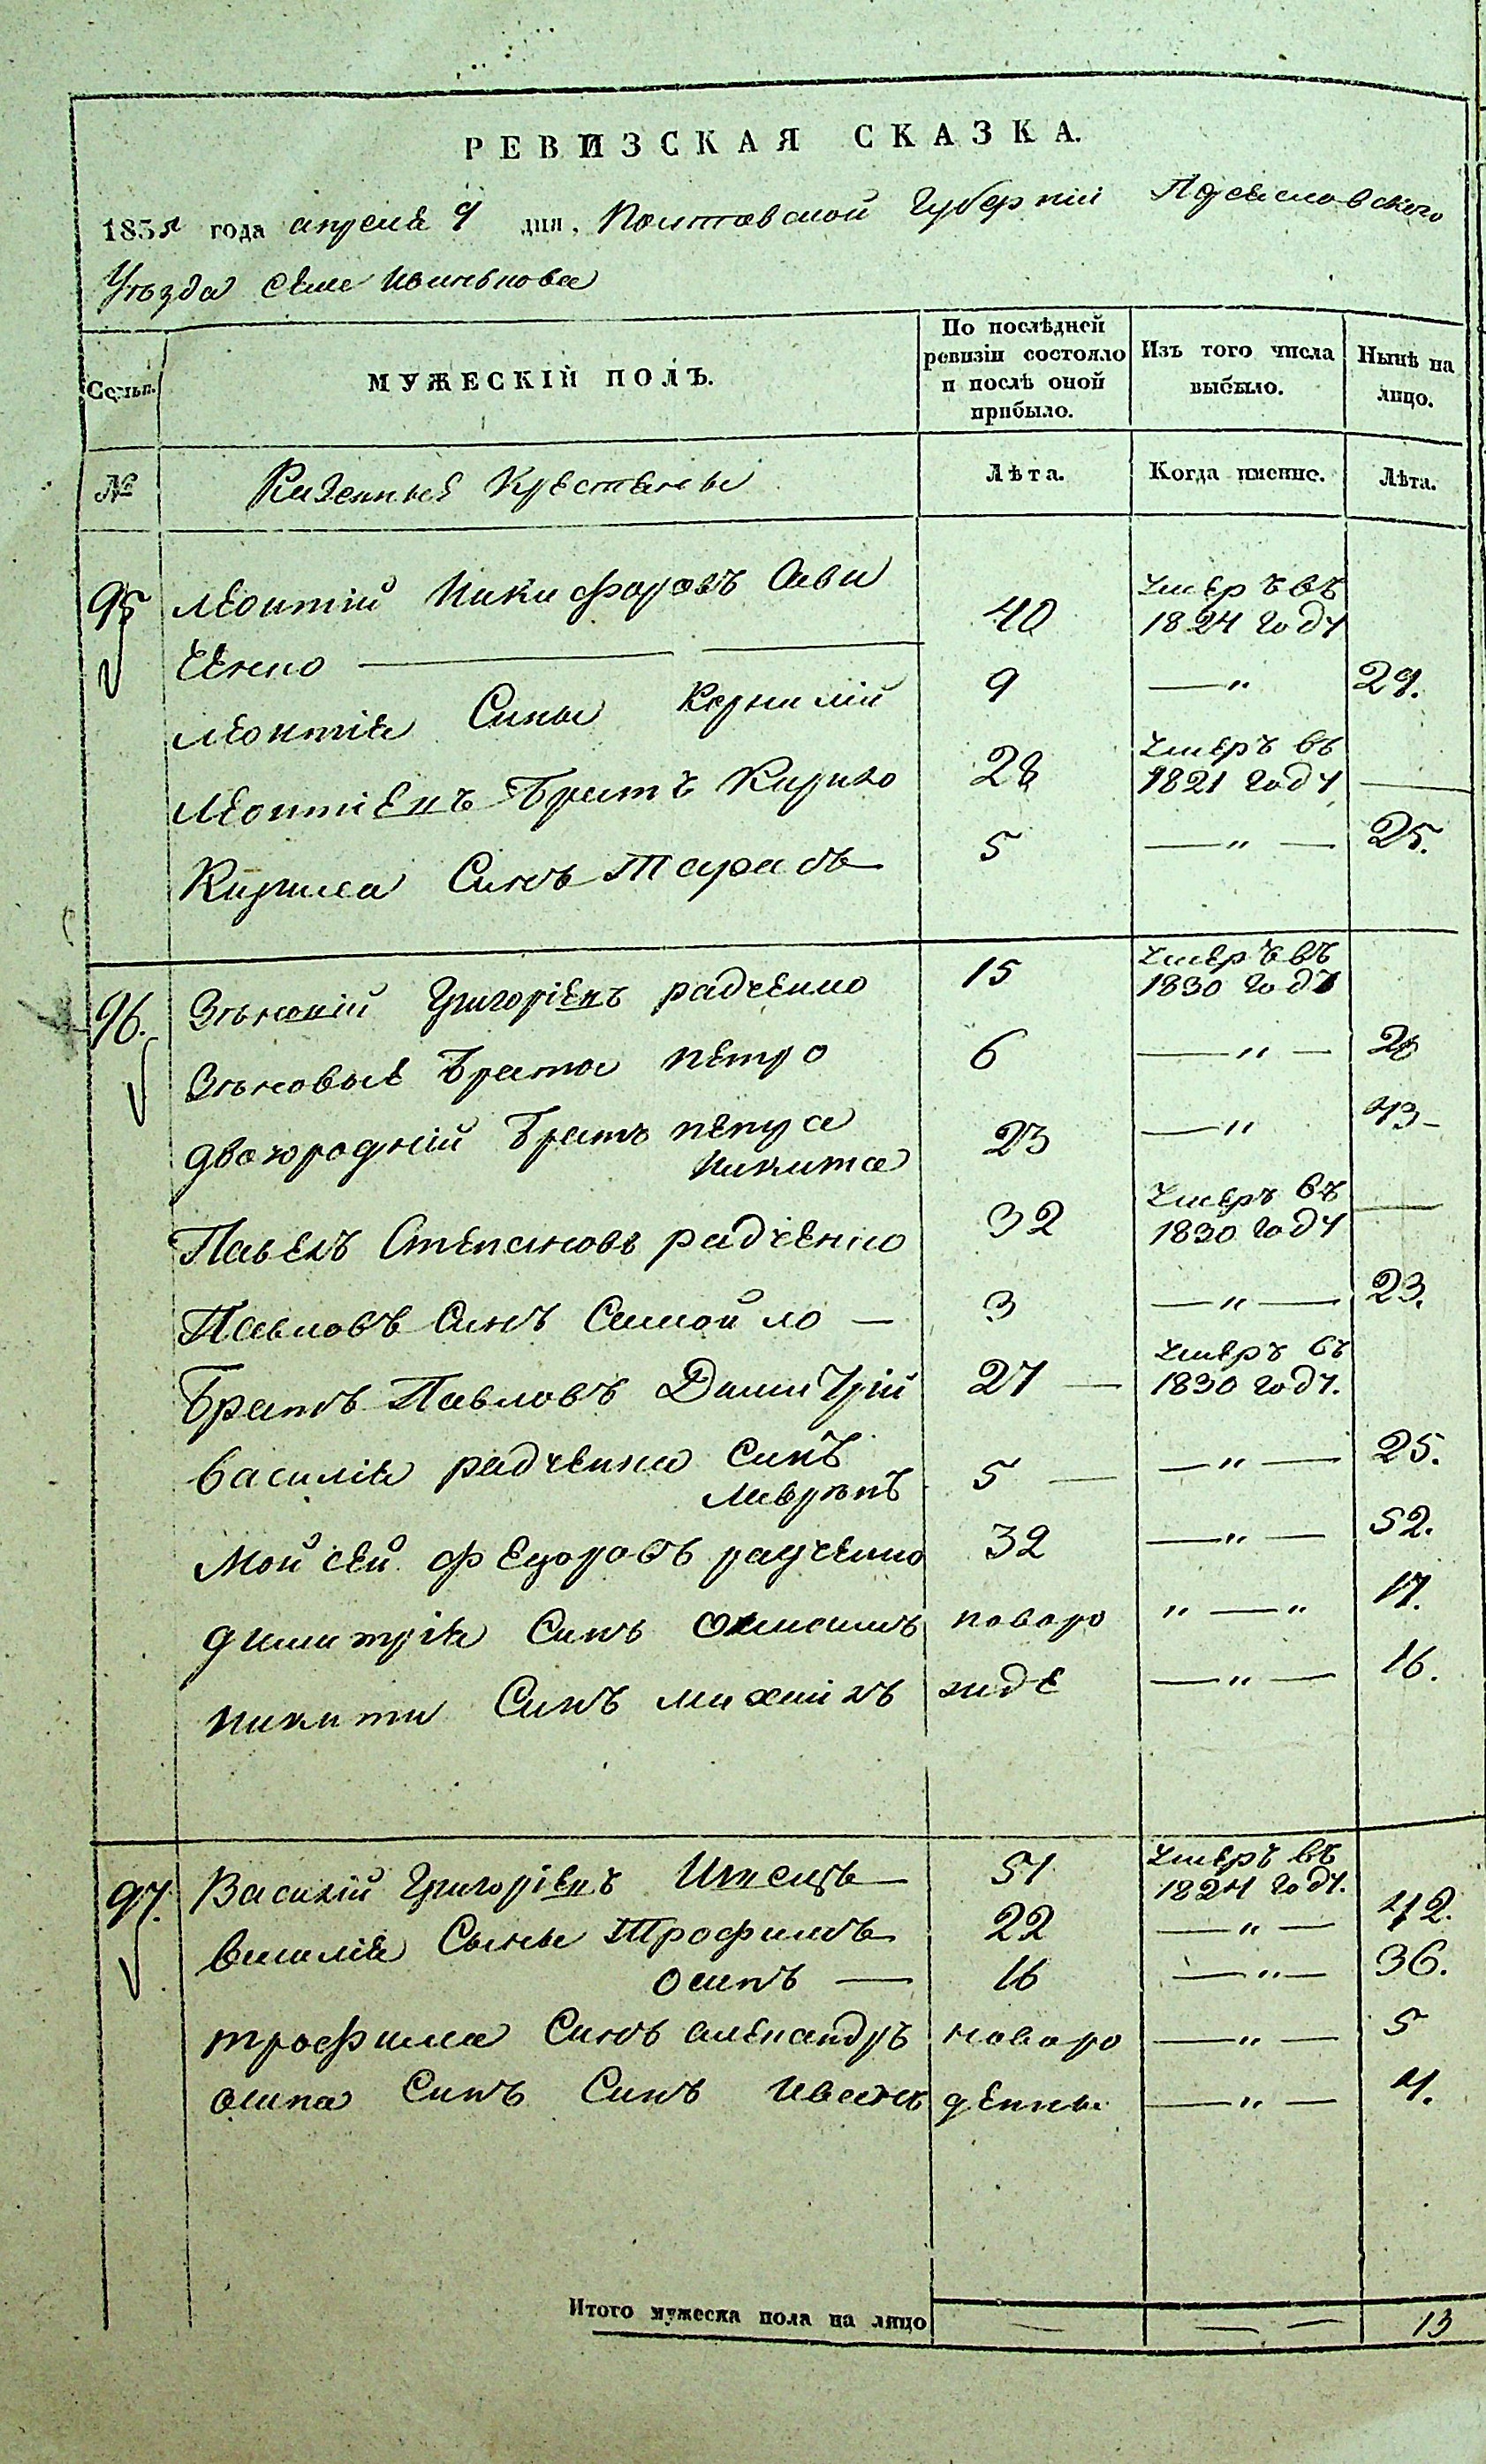 РЕВИЗСКАЯ СКАЗКА.
183 года апреля 9 дня, Полтавской Губерніи
Уѣзда села
Семьи. МУЖЕСКІЙ ПОЛЪ. По послѣдней ревизіи состояло и послѣ оной прибыло. Изъ того числа выбыло. Нынѣ на лицо.
№ Казенные Крестяне Лѣта. Когда именно. Лѣта.
95 Леонтій Никифоровъ Сав 40 умеръ въ 1824 году
ченко
Леонтія Сины Корнилій 9 — „ 29.
Леонтіевъ Братъ Кирило 28 умеръ въ 1821 году —
Кирила Синъ Тарасъ 5 — „ — 25.
96. Григоріевъ радченко 15 умеръ въ 1830 году
Браты петро 6 — „ — 26
двоюродній Братъ петра 23 — „ 43 —
никита
Павелъ Степановъ радченко 32 умеръ въ 1830 году —
Павловъ Синъ Самойло — 3 — „ — 23.
Братъ Павловъ Димитрій 27 — умеръ въ 1830 году.
василія радченка Синъ 5 — — „ — 25.
Лаврѣнъ
Мойсей федоровъ радченко 32 — „ — 52.
димитрія Синъ новоро „ — „ 17.
никити Синъ михаилъ жде — „ — 16.
97. Василій Григоріевъ 51 умеръ въ 1824 году.
василія Сыны Трофимъ 22 — „ — 42.
осипъ — 16 — „ — 36.
трофима Синъ александръ новоро — „ — 5
осипа Синъ Синъ Иванъ денны — „ — 4.
Итого мужеска пола на лицо — — — 13